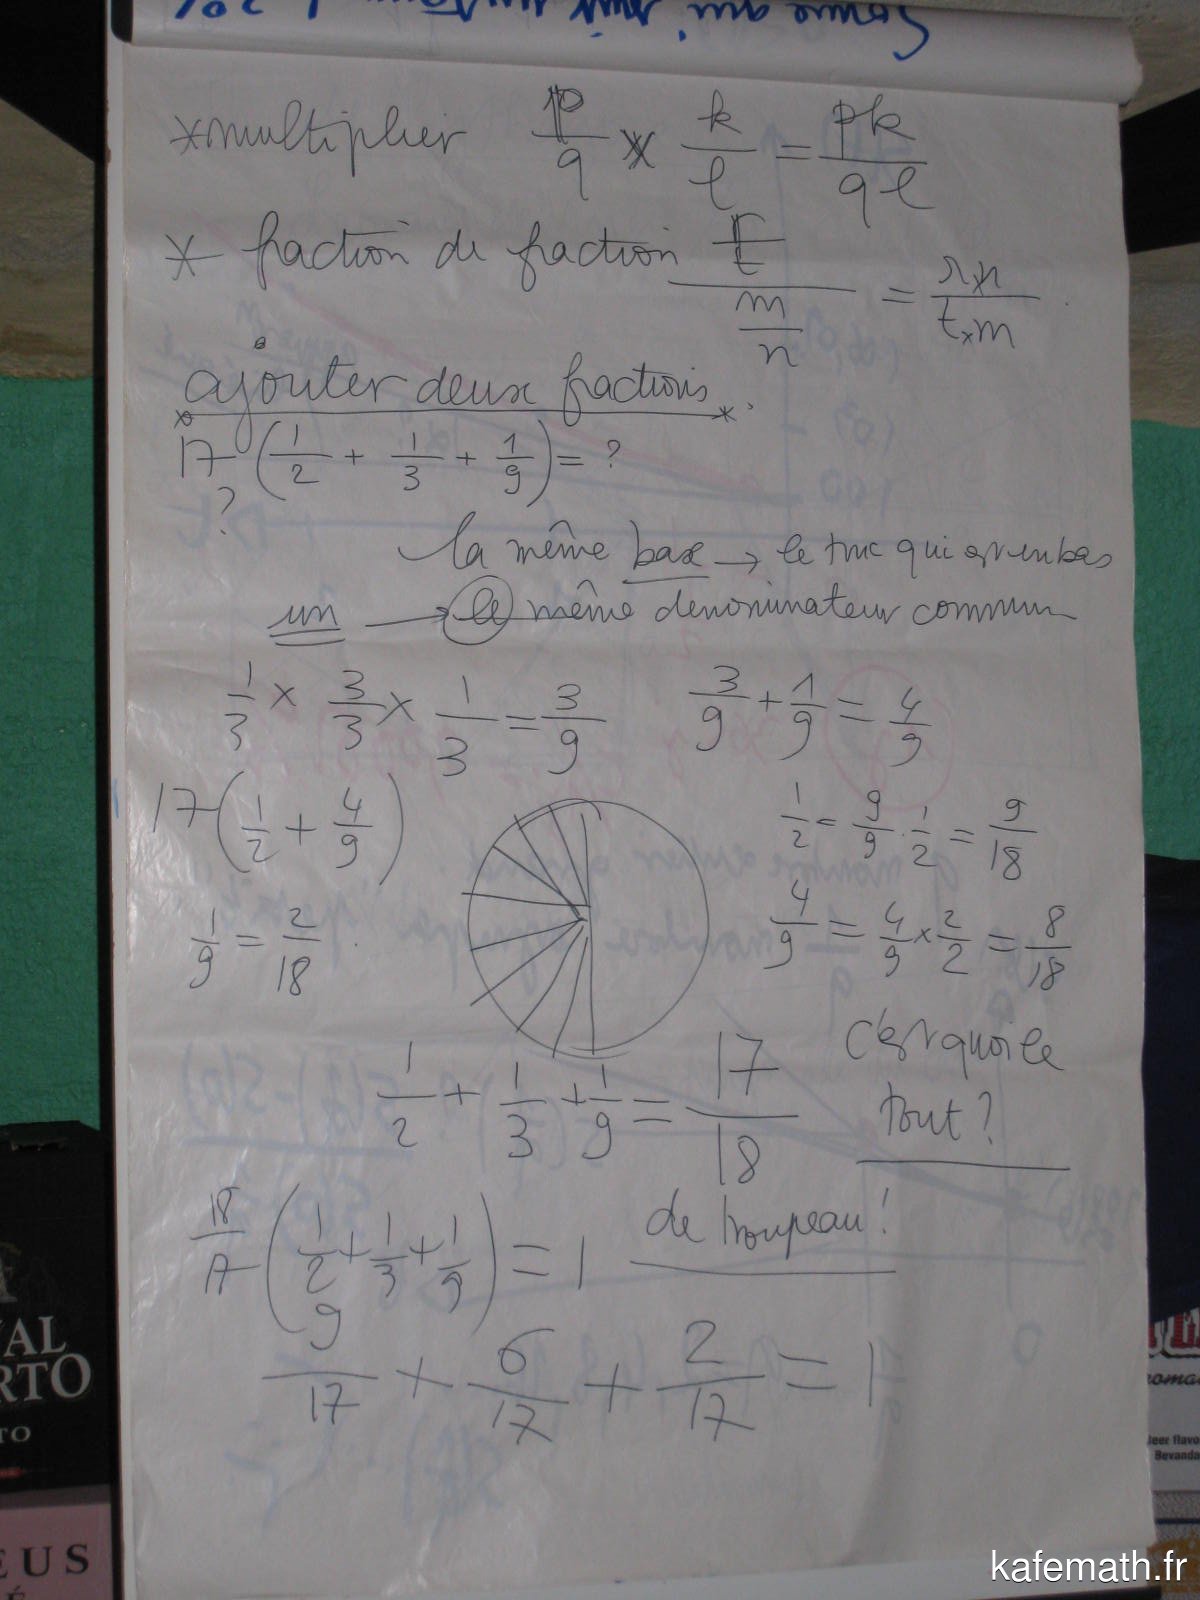 *multiplier p/q × k/l = pk/ql
* fraction de fraction r/t / m/n = r×n / t×m
ajouter deux fractions.
17 (1/2 + 1/3 + 1/9) = ?
?
la même base → le truc qui est en bas
un → le même dénominateur commun
1/3 × 3/3 × 1/3 = 3/9 3/9 + 1/9 = 4/9
17 (1/2 + 4/9) 1/2 = 9/9 . 1/2 = 9/18
1/9 = 2/18 . 4/9 = 4/9 × 2/2 = 8/18
1/2 + 1/3 + 1/9 = 17/18 c'est quoi le
tout ?
18/17 (1/2 + 1/3 + 1/9) = 1 de troupeau !
9/17 + 6/17 + 2/17 = 1
VAL
RTO
TO
EUS
kafemath.fr